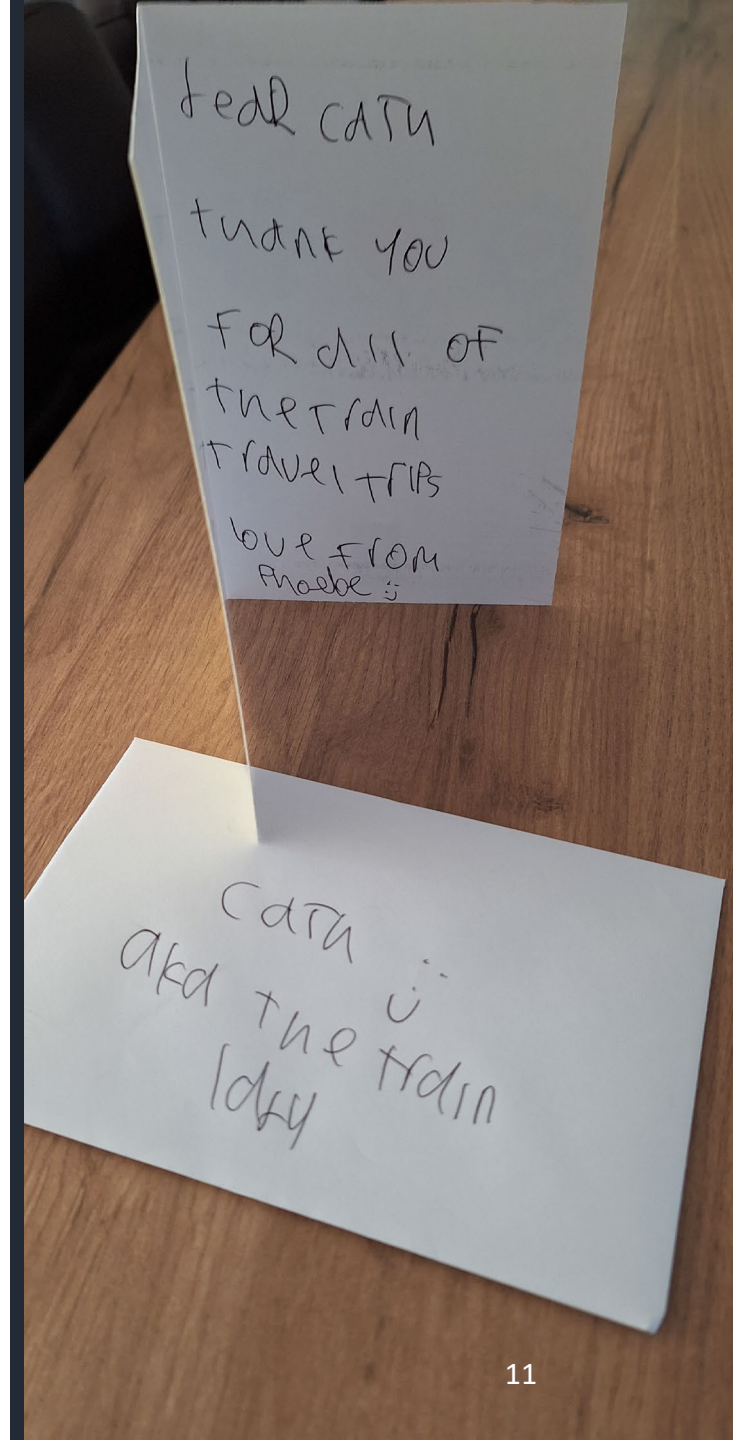 dear CATH
thank you
FOR all OF
the Train
Travel trips
love From
Phoebe :)
CATH :)
aka the train
lady
11